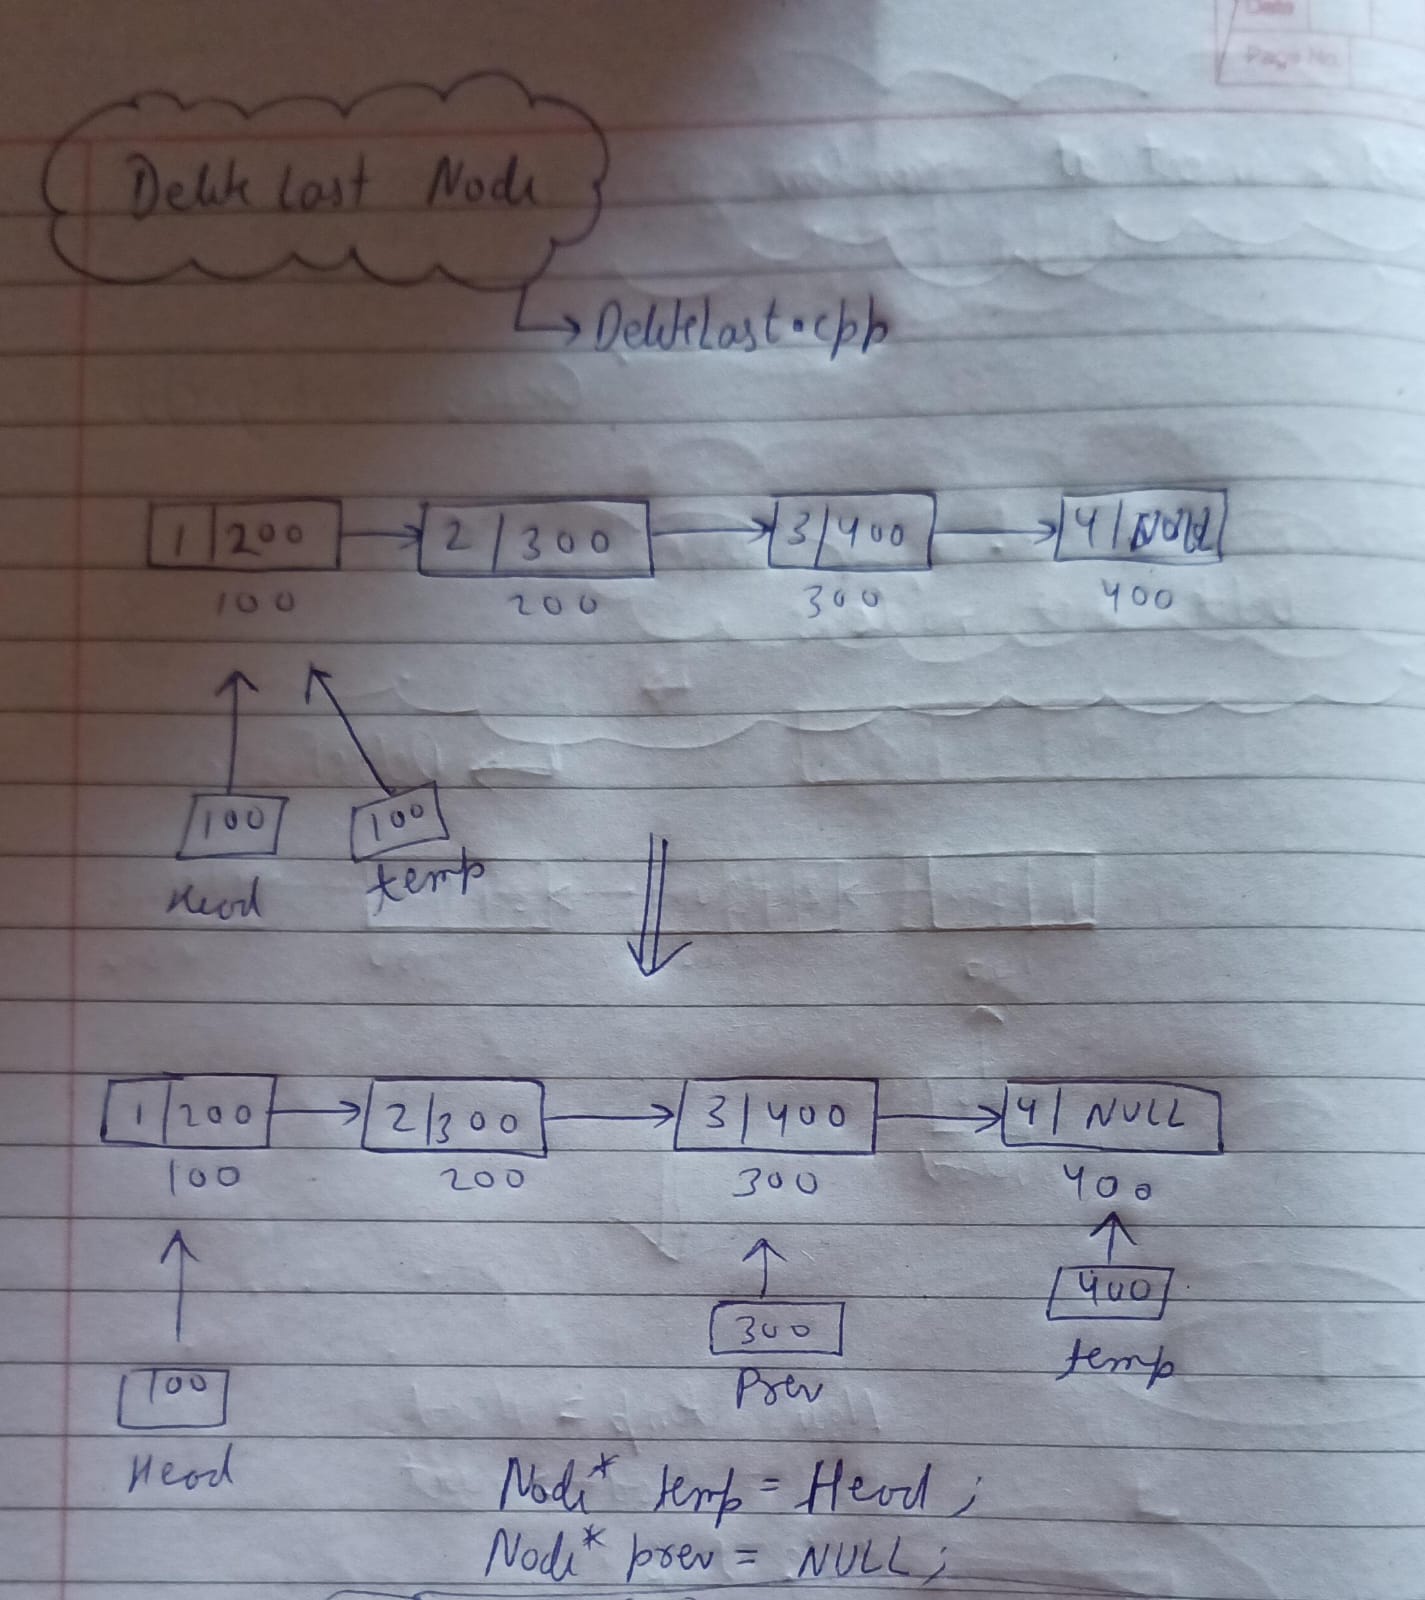 Date
Page No.
Delete Last Node
DeleteLast.cpp
1 200 2 300 3 400 4 NULL
100 200 300 400
100 100
Head temp
1 200 2 300 3 400 4 NULL
100 200 300 400
400
300
temp
100
Prev
Head
Node* temp = Head;
Node* prev = NULL;